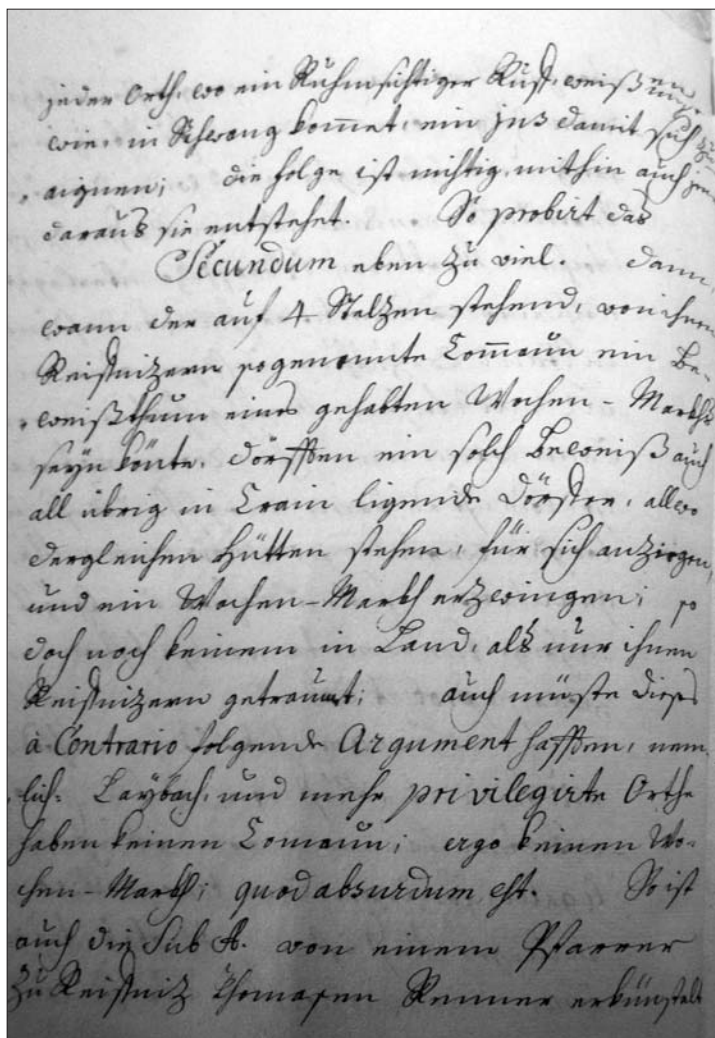 jeder Orth, wo ein Ruhmsichtiger Rust, weiß
wie, in Schwang kommet, ein jus damit sich zu
aignen; die folge ist nichtig, mithin auch jene
daraus sie entstehet. So probirt das
Secundum eben zu viel. dann,
wann der auf 4 Stelzen stehend, von ihnen
Reiffnizern sogenannte Comaun ein Be-
weißthum eines gehabten Wochen-Markhs
seyn könte, dörfften ein solch Beweiß auch
all übrig in Crain ligende Dörffer, allwo
dergleichen Hütten stehen, für sich anziegen,
und ein Wochen-Markh erzwingen; so
doch noch keinem in Land, als nur ihnen
Reiffnizern getraumt; auch müste dieses
à Contrario folgende Argument hafften, nem-
lich: Laybach, und mehr privilegirte Orthe
haben keinen Comaun; ergo keinen Wo-
chen-Markh; quod absurdum est. So ist
auch die Sub A. von einem Pfarrer
zu Reiffniz Thomasen Renner erkünstelt